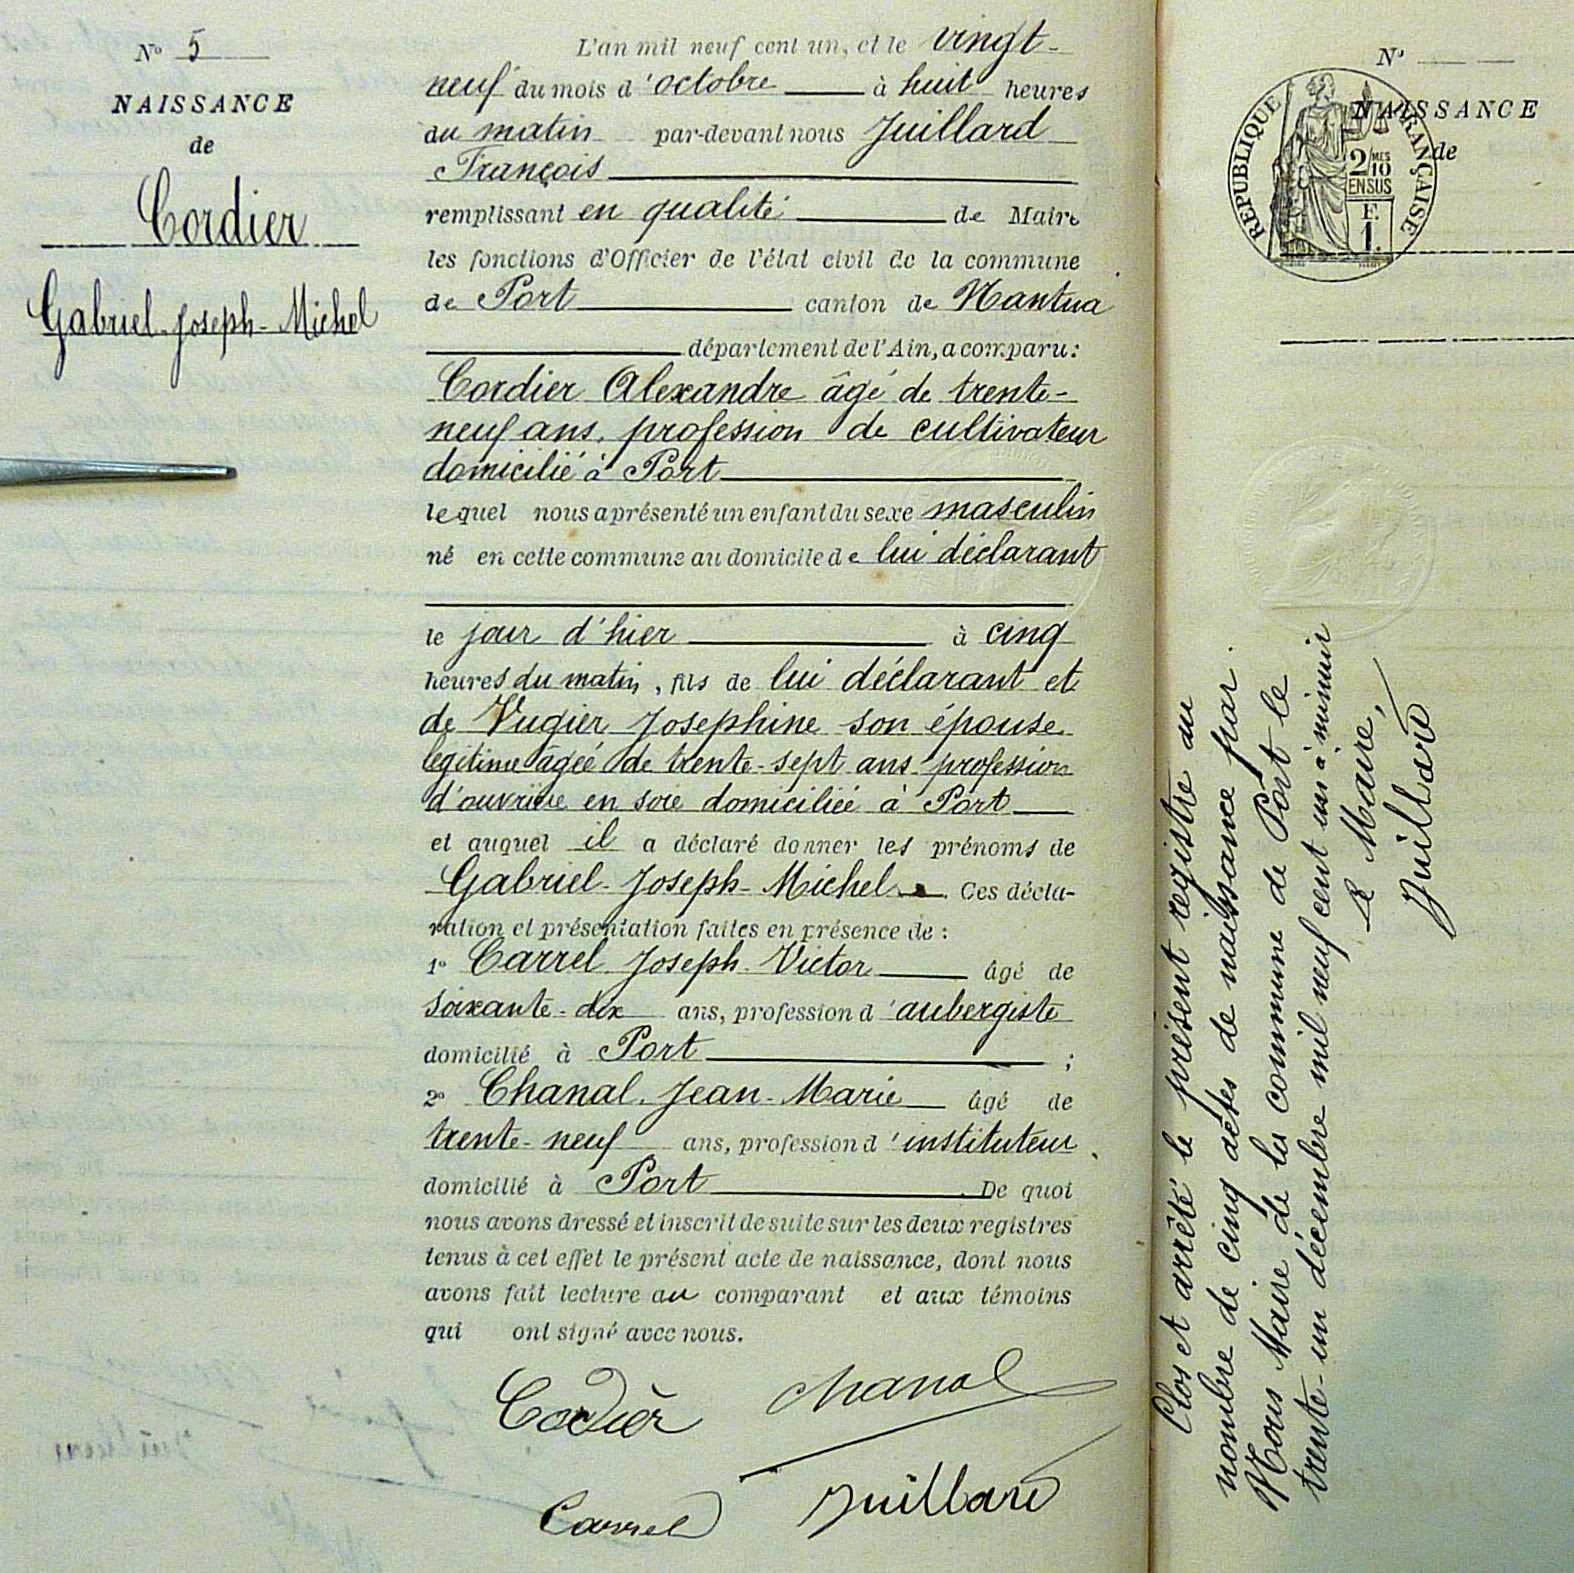 N° 5
NAISSANCE
de
Cordier
Gabriel-Joseph-Michel
L'an mil neuf cent un, et le vingt-
neuf du mois d'octobre à huit heures
du matin par-devant nous Juillard
François
remplissant en qualité de Maire
les fonctions d'Officier de l'état civil de la commune
de Port canton de Nantua
département de l'Ain, a comparu:
Cordier Alexandre âgé de trente-
neuf ans, profession de cultivateur
domicilié à Port
lequel nous a présenté un enfant du sexe masculin
né en cette commune au domicile de lui déclarant
le jour d'hier à cinq
heures du matin, fils de lui déclarant et
de Vugier Josephine son épouse
légitime âgée de trente-sept ans profession
d'ouvrière en soie domiciliée à Port
et auquel il a déclaré donner les prénoms de
Gabriel-Joseph-Michel. Ces décla-
ration et présentation faites en présence de:
1° Carrel Joseph-Victor âgé de
soixante-dix ans, profession d'aubergiste
domicilié à Port ;
2° Chanal Jean-Marie âgé de
trente-neuf ans, profession d'instituteur
domicilié à Port. De quoi
nous avons dressé et inscrit de suite sur les deux registres
tenus à cet effet le présent acte de naissance, dont nous
avons fait lecture au comparant et aux témoins
qui ont signé avec nous.
Cordier Chanal
Carrel Juillard
N°
NAISSANCE
de
RÉPUBLIQUE FRANÇAISE
2/10 MES
EN SUS
F.
1.
Clos et arrêté le présent registre au
nombre de cinq actes de naissance par
Nous Maire de la commune de Port le
trente-un décembre mil neuf cent un à minuit
Le Maire,
Juillard